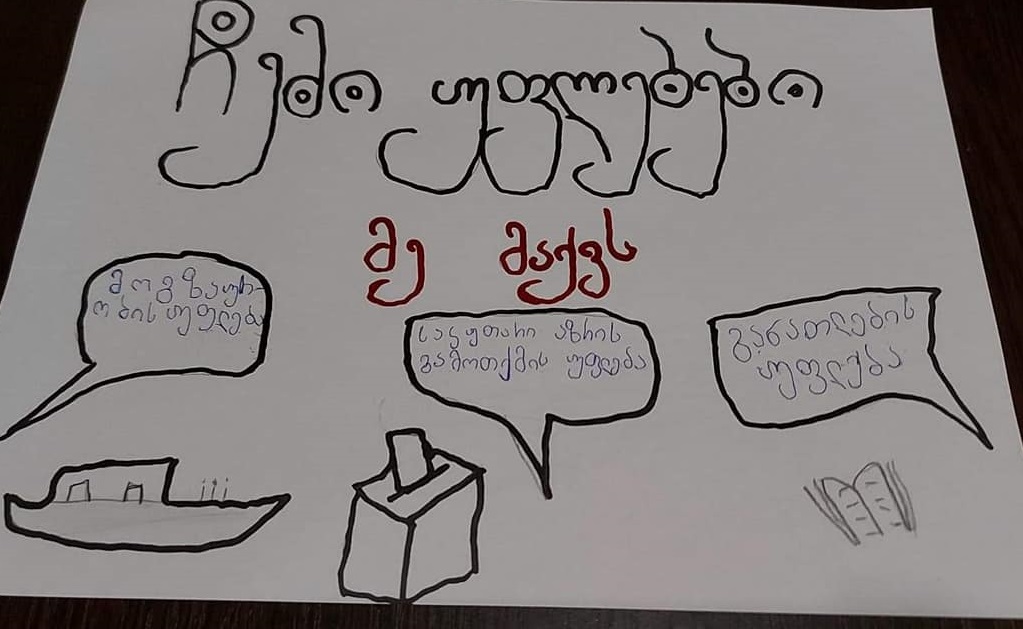 ჩემი უფლებები
მე მაქვს
მოგზაურ-
ობის უფლება
საკუთარი აზრის
გამოთქმის უფლება
განათლების
უფლება